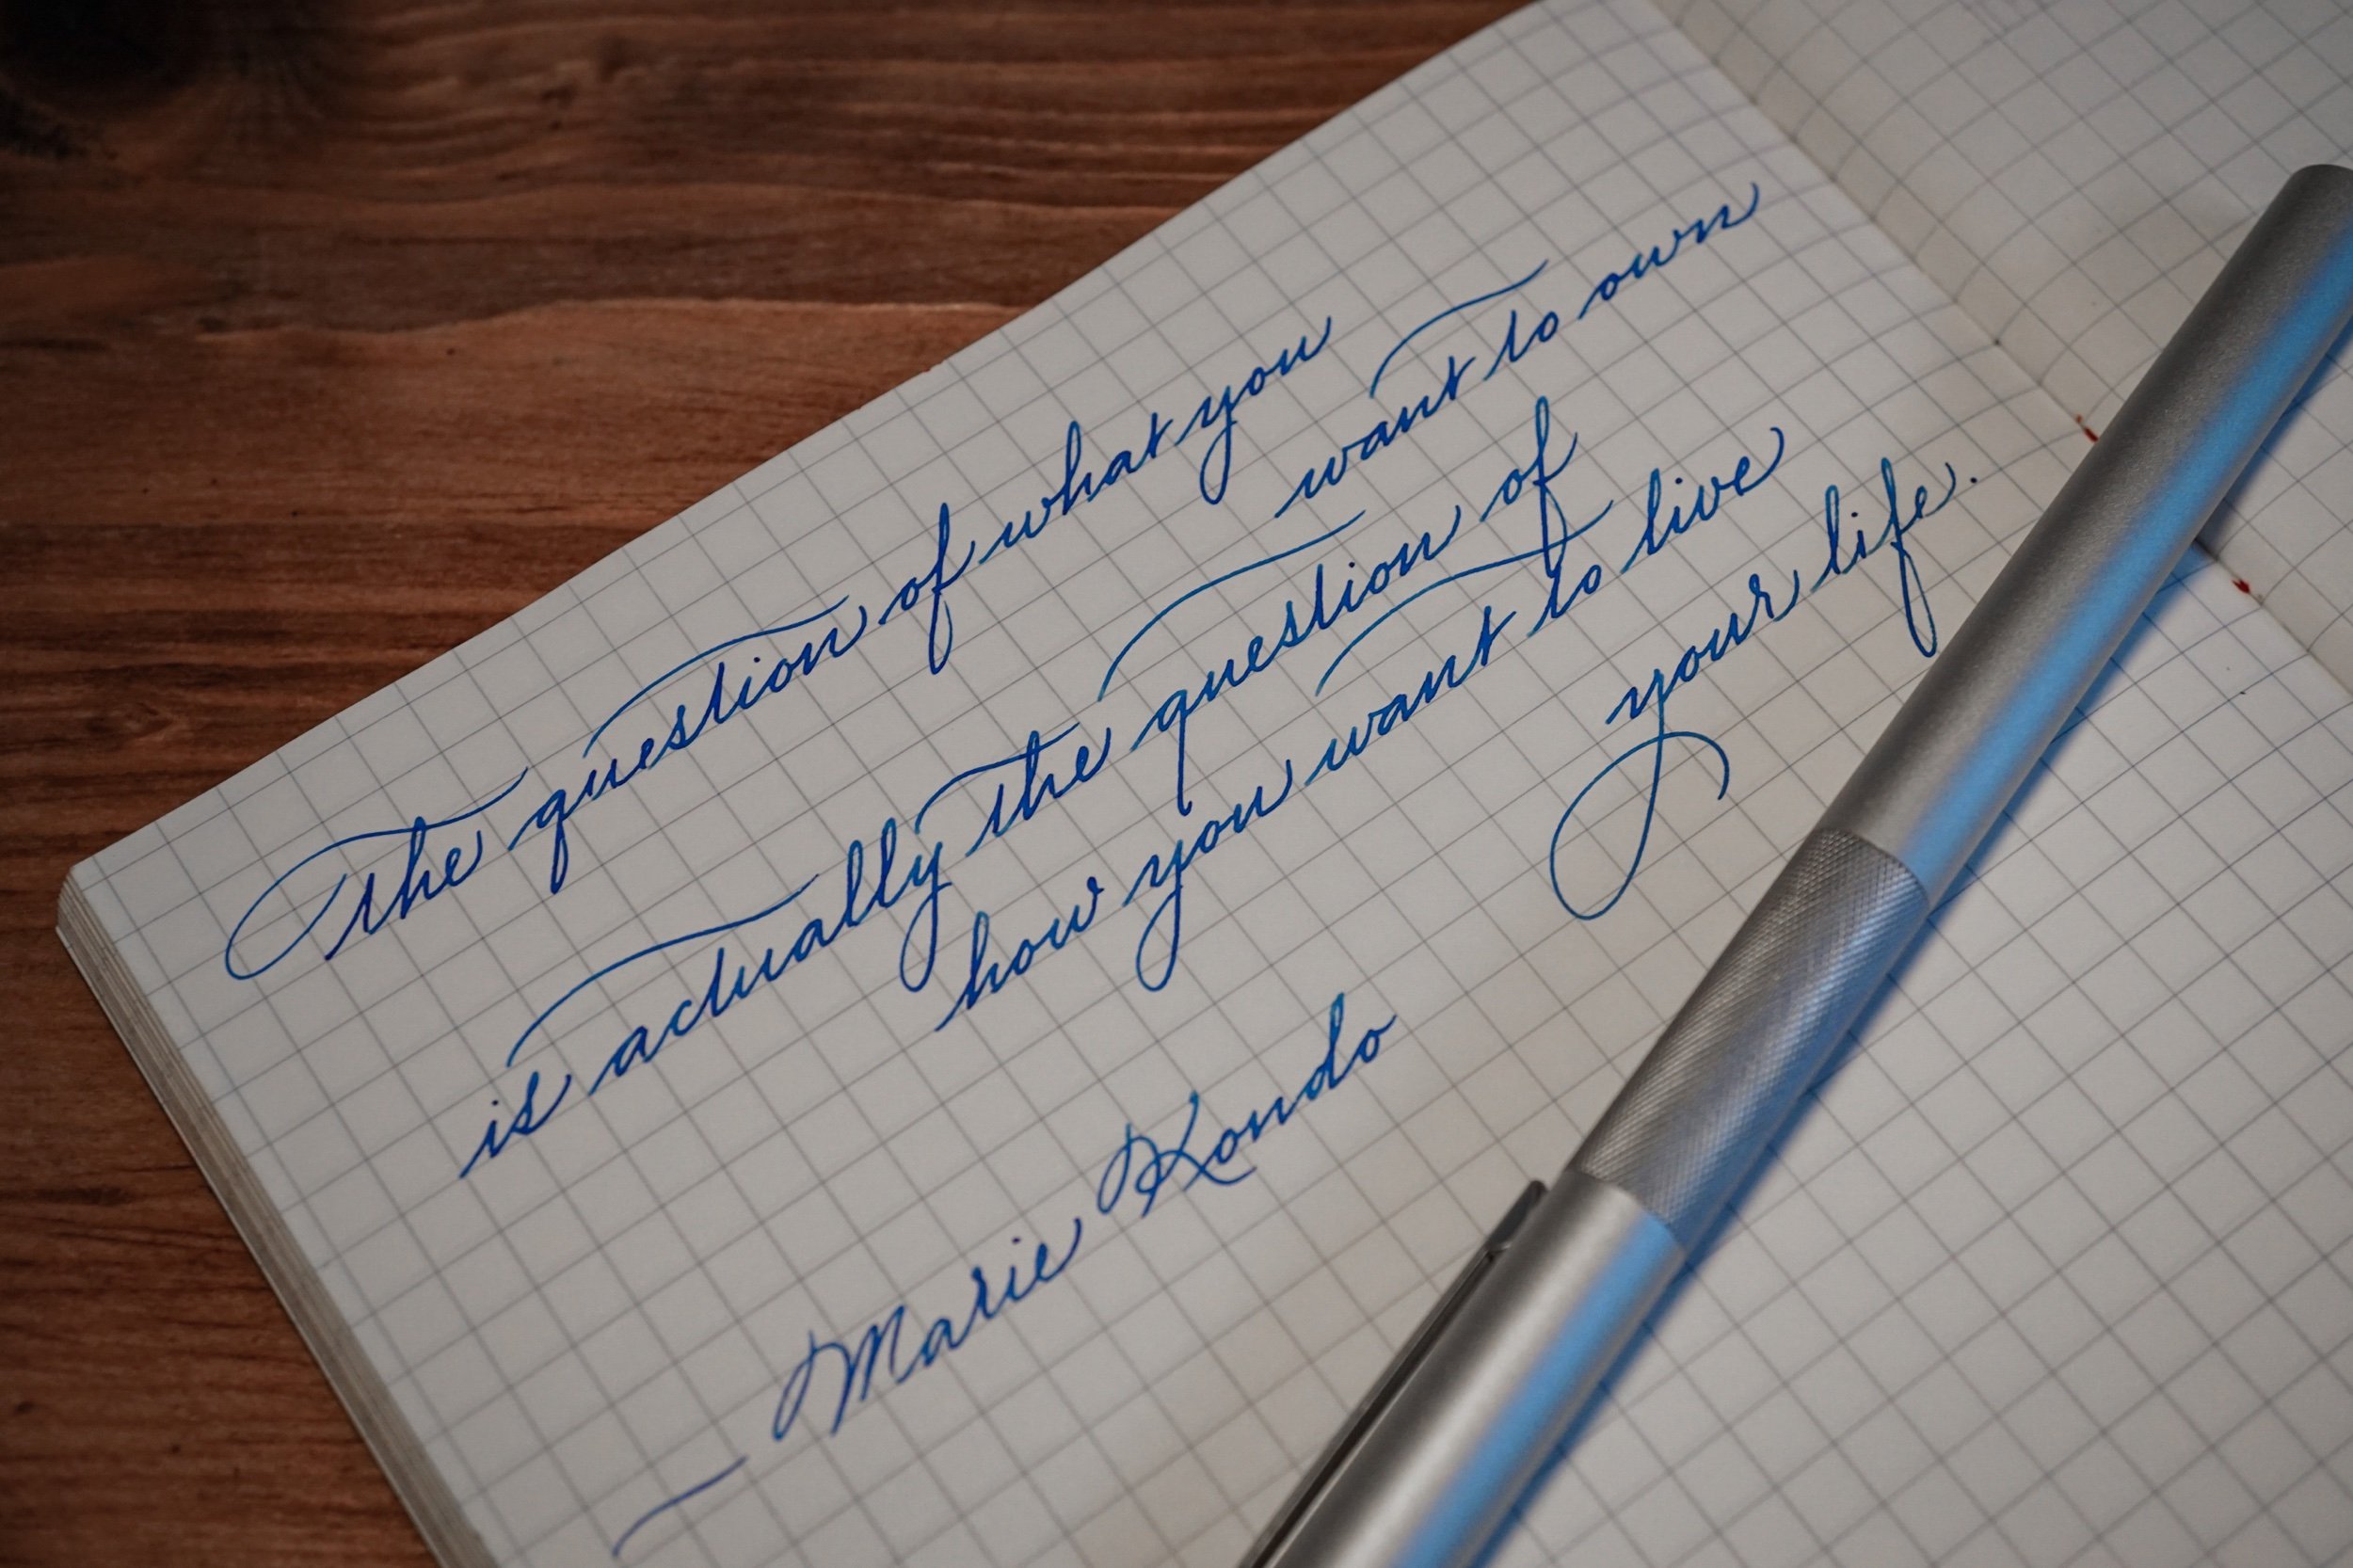 The question of what you
want to own
is actually the question of
how you want to live
your life.
— Marie Kondo